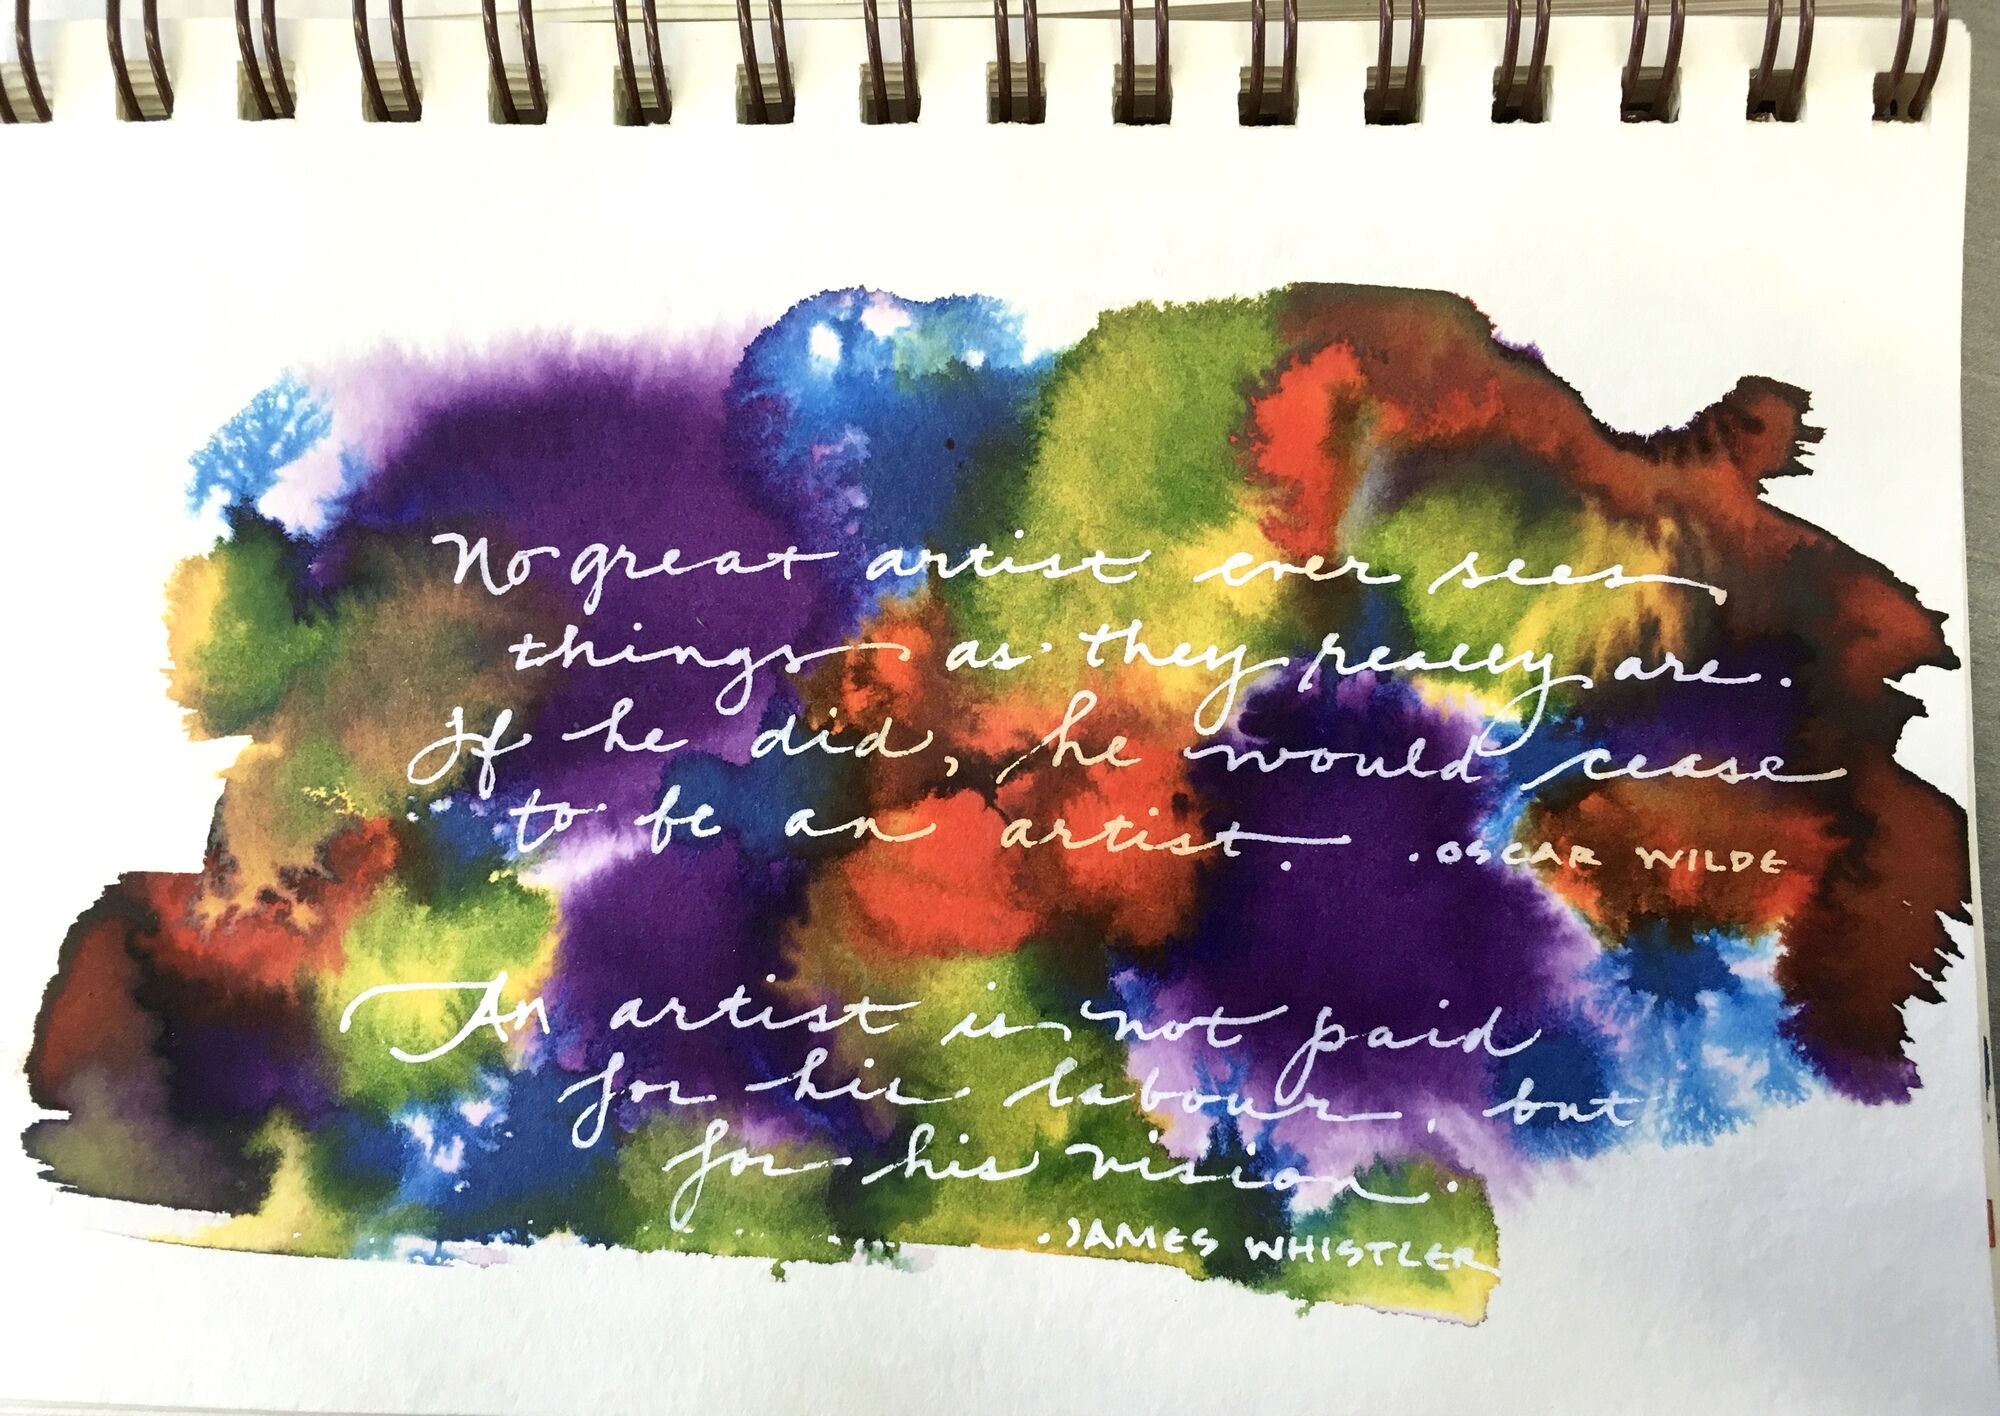 No great artist ever sees
things as they really are.
If he did, he would cease
to be an artist. . OSCAR WILDE
An artist is not paid
for his labour, but
for his vision.
. JAMES WHISTLER